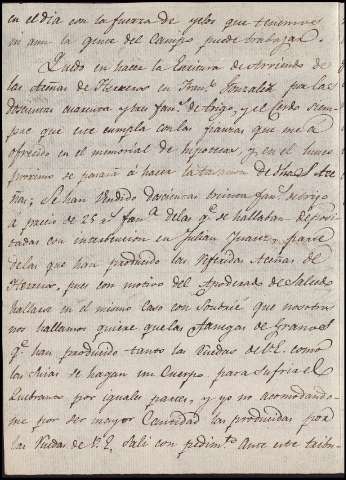 en el dia con la fuerza de yelos que tenemos
ni aun la gente del campo puede trabajar.
Quedo en hacer la Escritura de Arriendo de
las Azeñas de Herreros en Franco Gonzalez por las
doscientas cuarenta y tres fans de trigo, y el cerdo siem-
pre que este cumpla con las fianzas que me a
ofrecido en el memorial de hipotecas, y en el lunes
proximo se pasará á hacer la tasazon de dhas Aze-
ñas; Se han vendido doscientas treinta fans de trigo
á precio de 25 rs fanga de las qe se hallaban deposi-
tadas con intervencion en Julian Juarez, parte
de las que han producido las referidas Azeñas de
Herreros, pues con motivo del Apoderado de
hallarse en el mismo caso con que nosotros
nos hallamos quiere que las fanegas de Granos
qe han producido tanto las Ruedas de V.E. como
las suias se hagan un Cuerpo para sufrir el
Quebranto por iguales partes, y yo no acomodando-
me por ser mayor Cantidad las producidas por
las Ruedas de V.E. Sali con pedimto Ante este tribu-